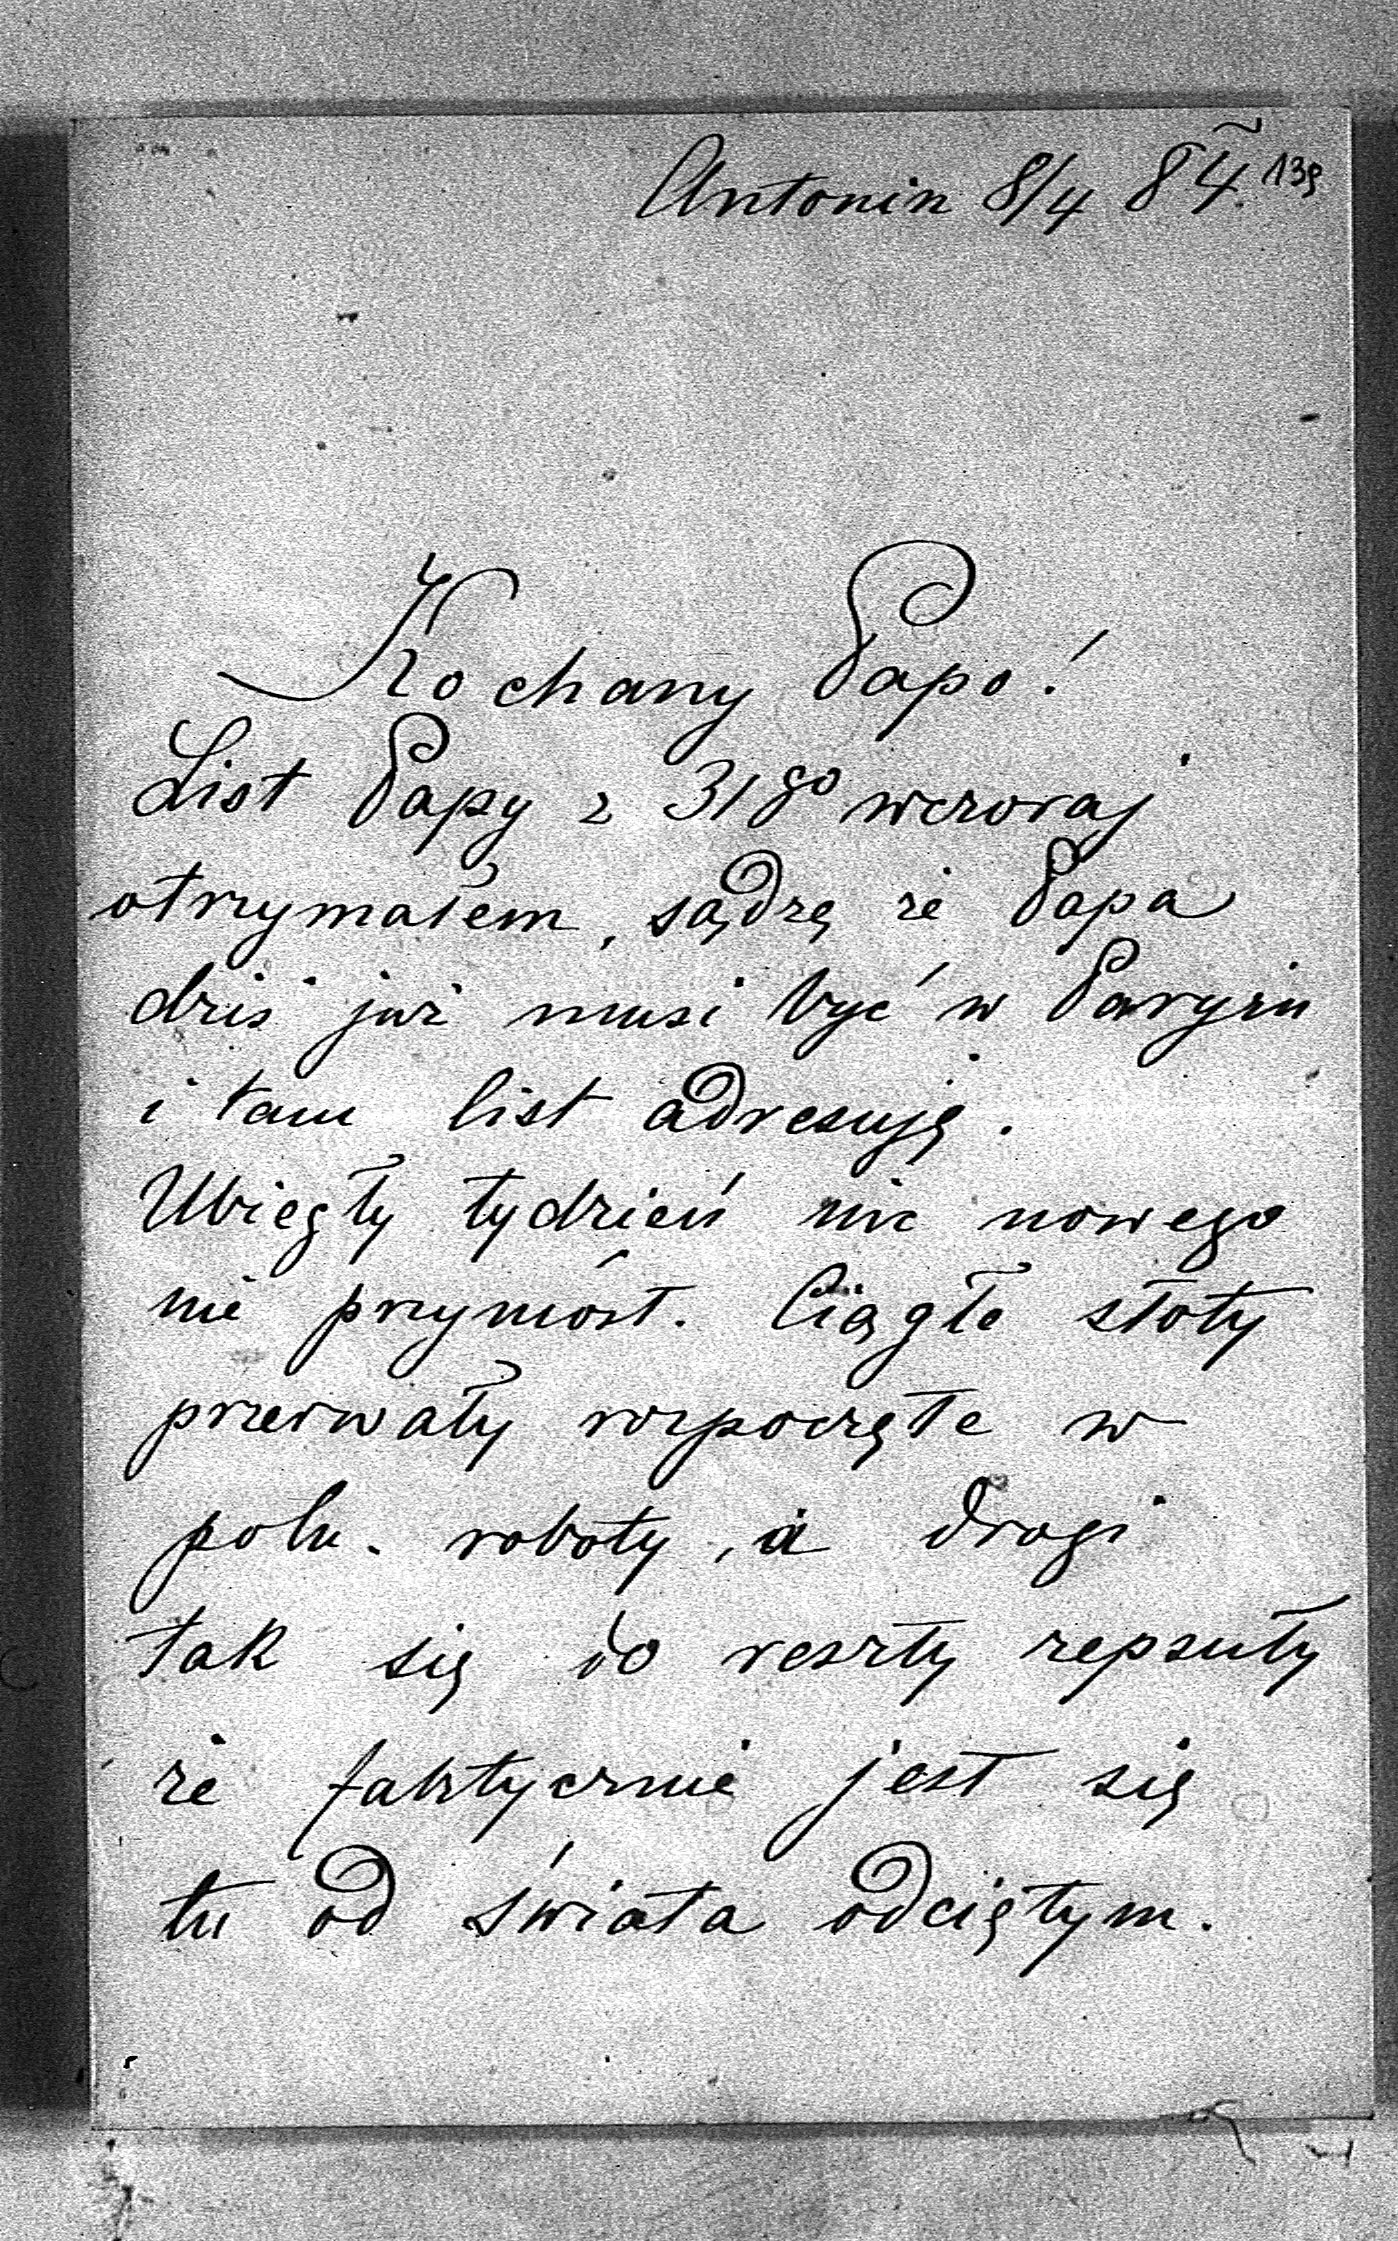 Antonin 8/4 84. 139
Kochany Papo!
List Papy z 31go wczoraj
otrzymałem, sądzę że Papa
dziś już musi być w Paryżu
i tam list adresuję.
Ubiegły tydzień nic nowego
nie przyniósł. Ciągłe słoty
przerwały rozpoczęte w
polu. roboty, a drogi
tak się do reszty zepsuły
że faktycznie jest się
tu od świata odciętym.